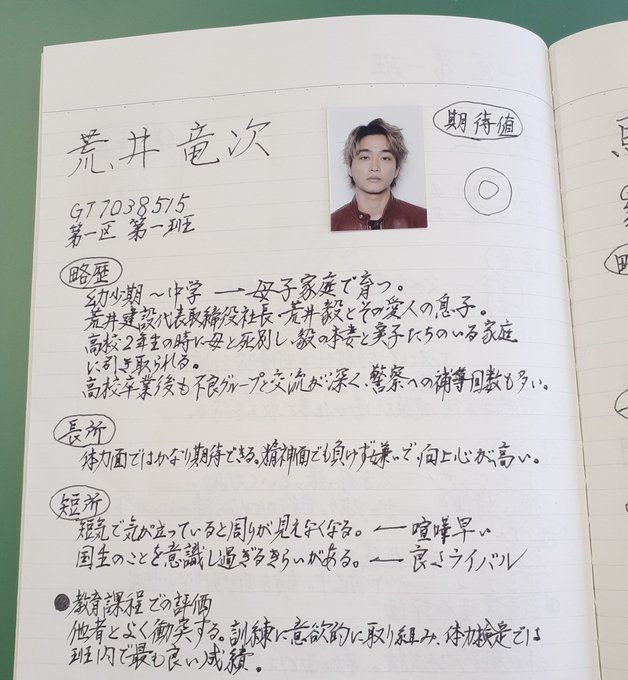 荒井竜次
期待値
◎
GT7038515
第一区 第一班
略歴
幼少期～中学 → 母子家庭で育つ。
荒井建設代表取締役社長・荒井毅とその愛人の息子。
高校2年生の時に母と死別し、毅の本妻と実子たちのいる家庭
に引き取られる。
高校卒業後も不良グループと交流が深く、警察への補導回数も多い。
長所
体力面ではかなり期待できる。精神面でも負けず嫌いで、向上心が高い。
短所
短気で気が立っていると周りが見えなくなる。←喧嘩早い
国生のことを意識し過ぎるきらいがある。←良きライバル
●教育課程での評価
他者とよく衝突する。訓練に意欲的に取り組み、体力検定では
班内で最も良い成績。